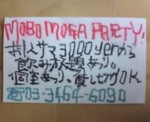 MOBO MOGA PARTY!
お1人サマ3,000yenから
飲み放題あり。
個室あり、貸し切りOK
☎03-3464-6090